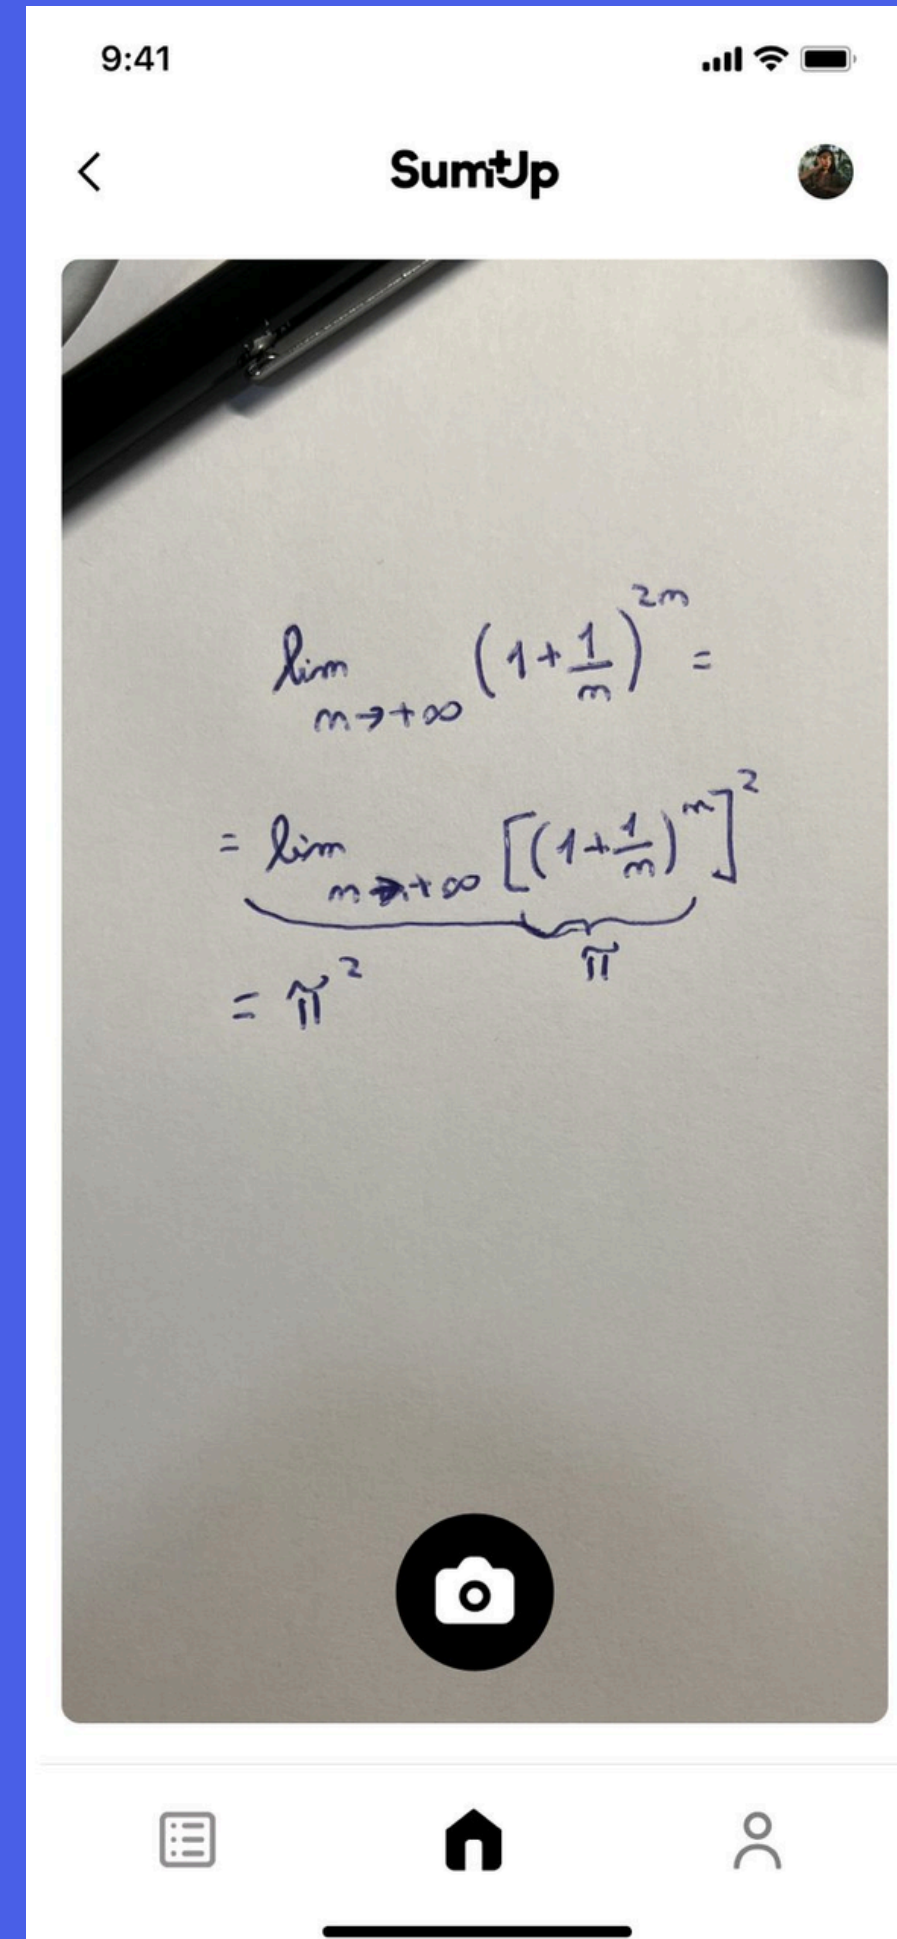 9:41
Sum+Up
lim m→+∞ (1+1/m)^2m =
= lim m→+∞ [(1+1/m)^m]^2
π
= π^2